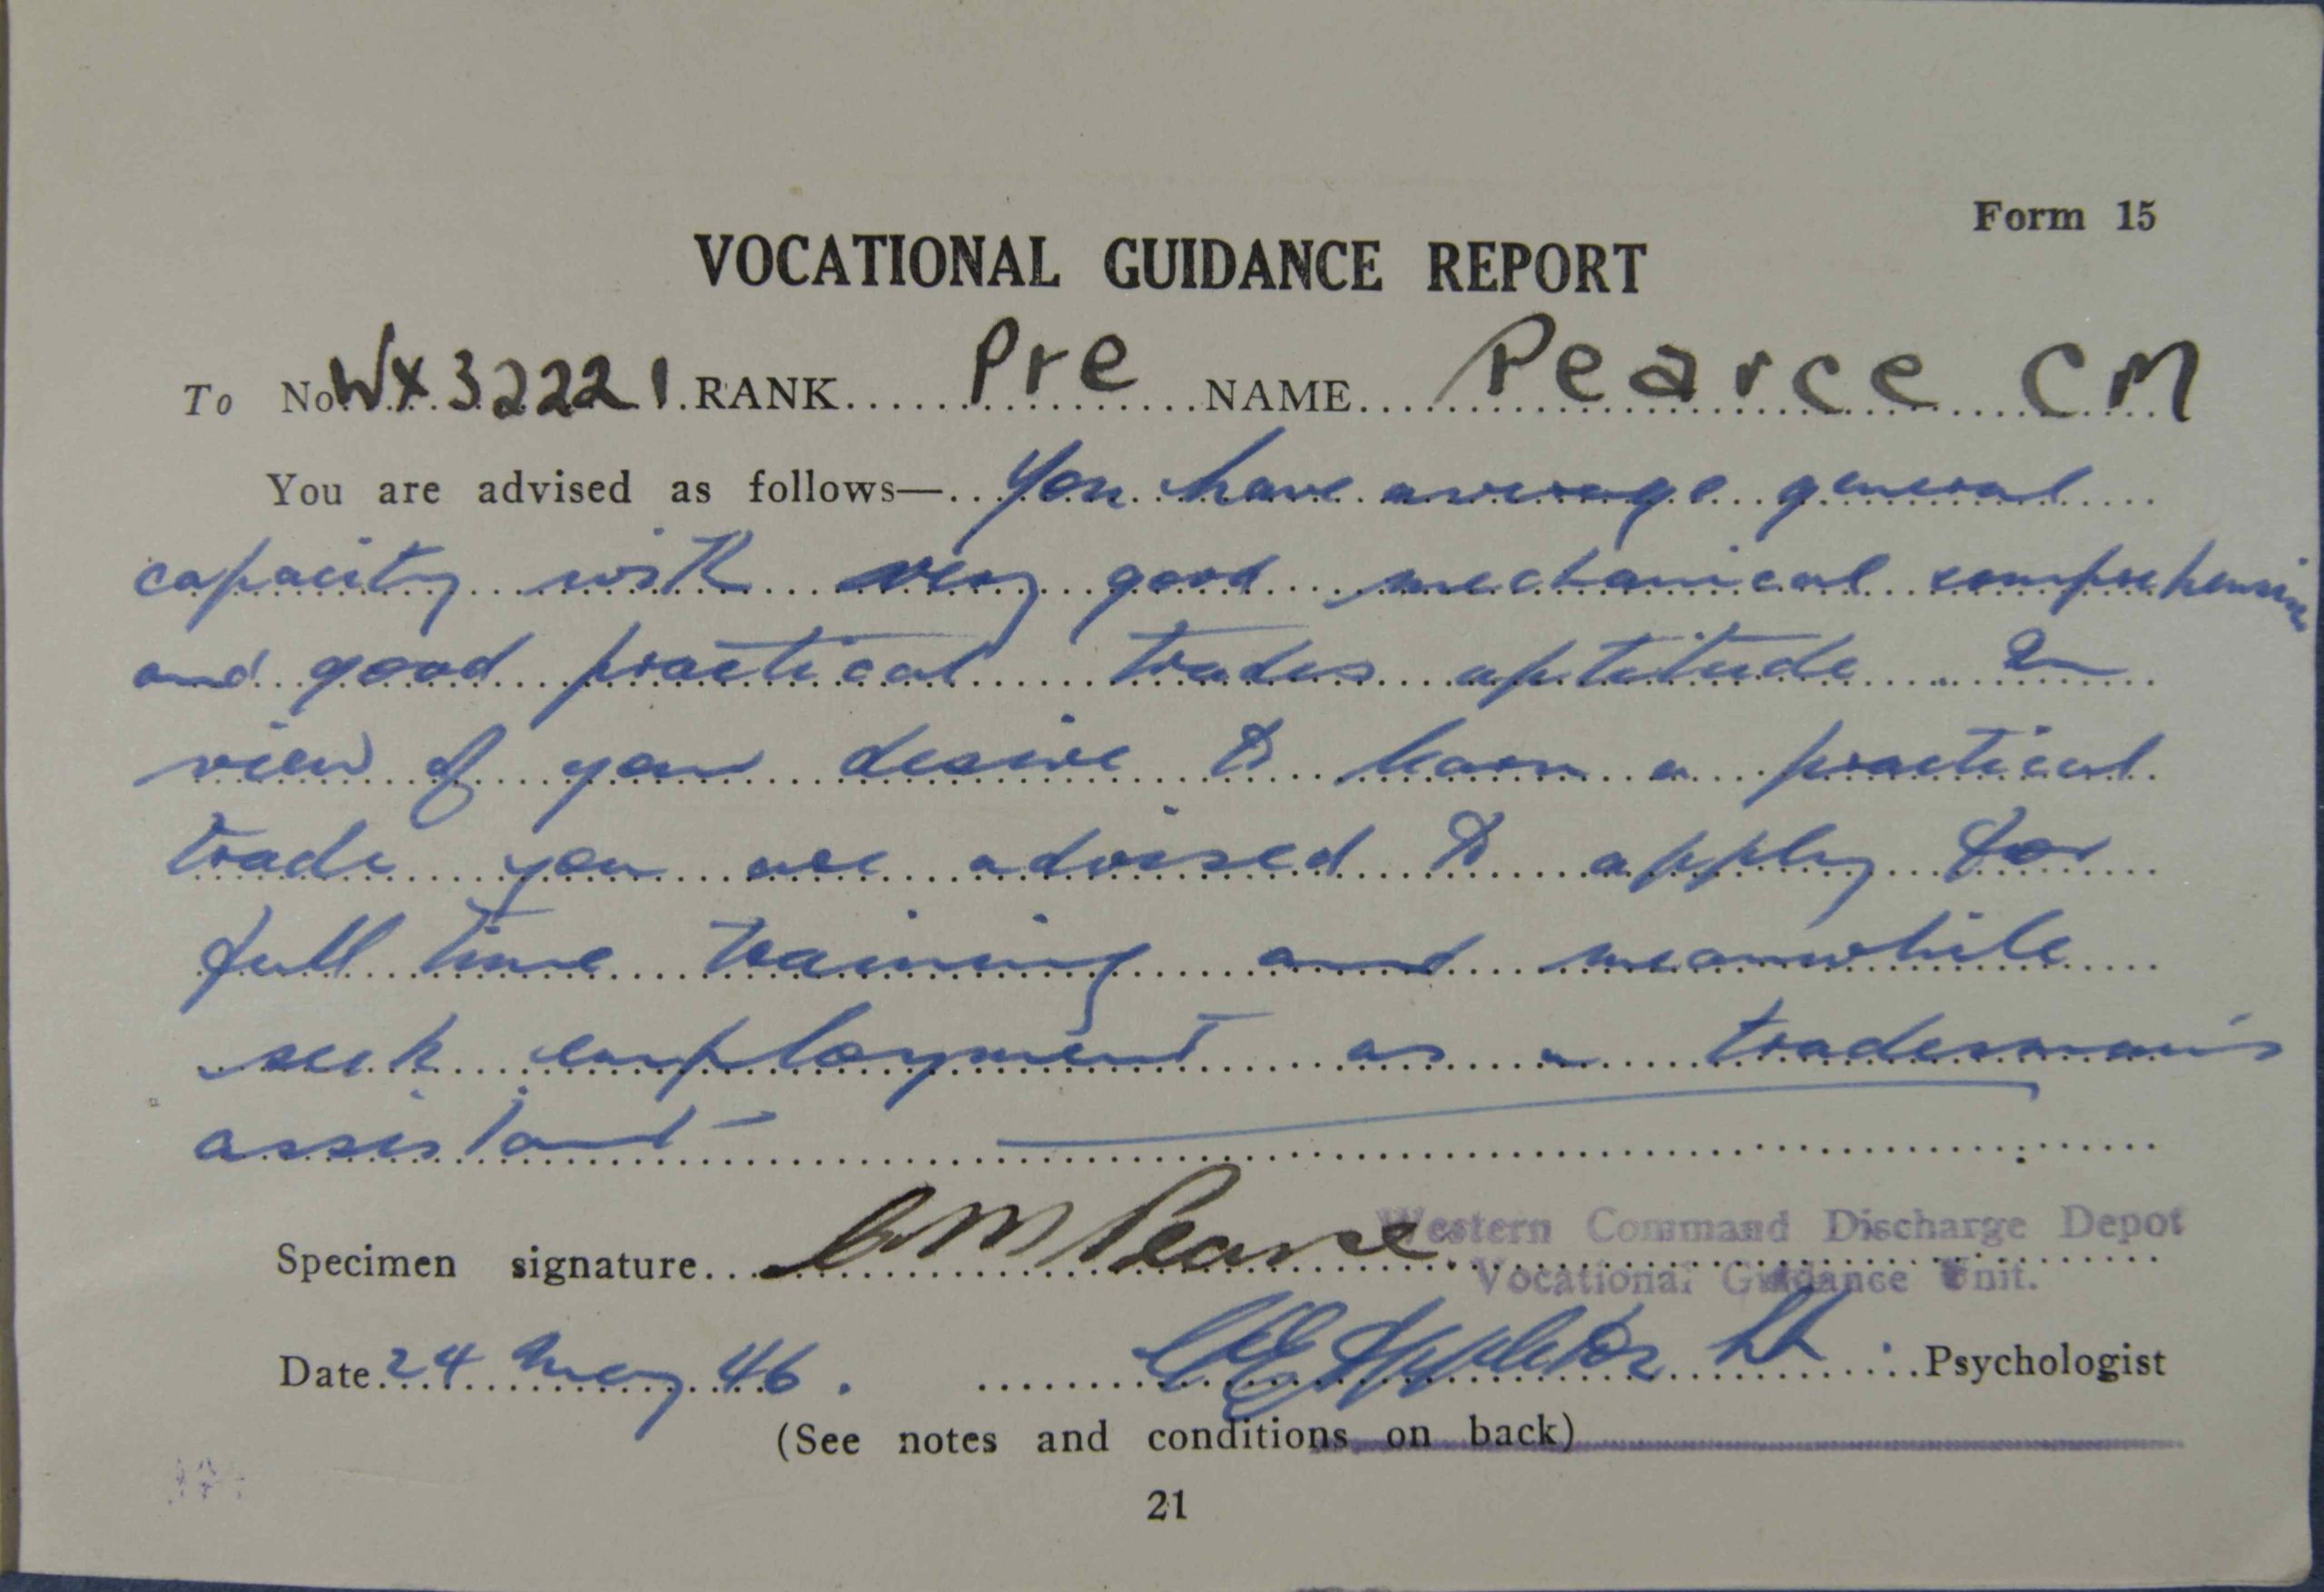 Form 15
VOCATIONAL GUIDANCE REPORT
To No. WX32221 RANK Pre NAME Pearce CM
You are advised as follows— You have average general
capacity with very good mechanical comprehension
and good practical trades aptitude In
view of your desire to learn a practical
trade you are advised to apply for
full time training and meanwhile
seek employment as a tradesman's
assistant
Specimen signature C M Pearce
Western Command Discharge Depot
Vocational Guidance Unit.
Date 24 May 46. Appleton Lt Psychologist
(See notes and conditions on back)
21